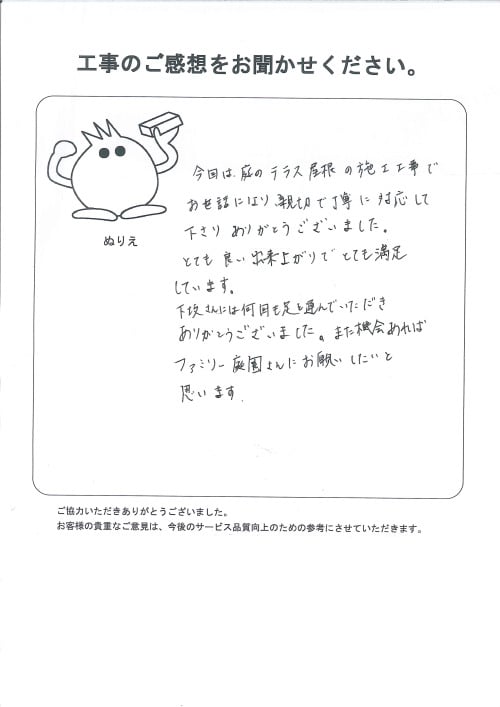 工事のご感想をお聞かせください。
ぬりえ
今回は、庭のテラス屋根の施工工事で
お世話になり親切で丁寧に対応して
下さりありがとうございました。
とても良い出来上がりでとても満足
しています。
下坂さんには何回も足を運んでいただき
ありがとうございました。また機会あれば
ファミリー庭園さんにお願いしたいと
思います
ご協力いただきありがとうございました。
お客様の貴重なご意見は、今後のサービス品質向上のための参考にさせていただきます。